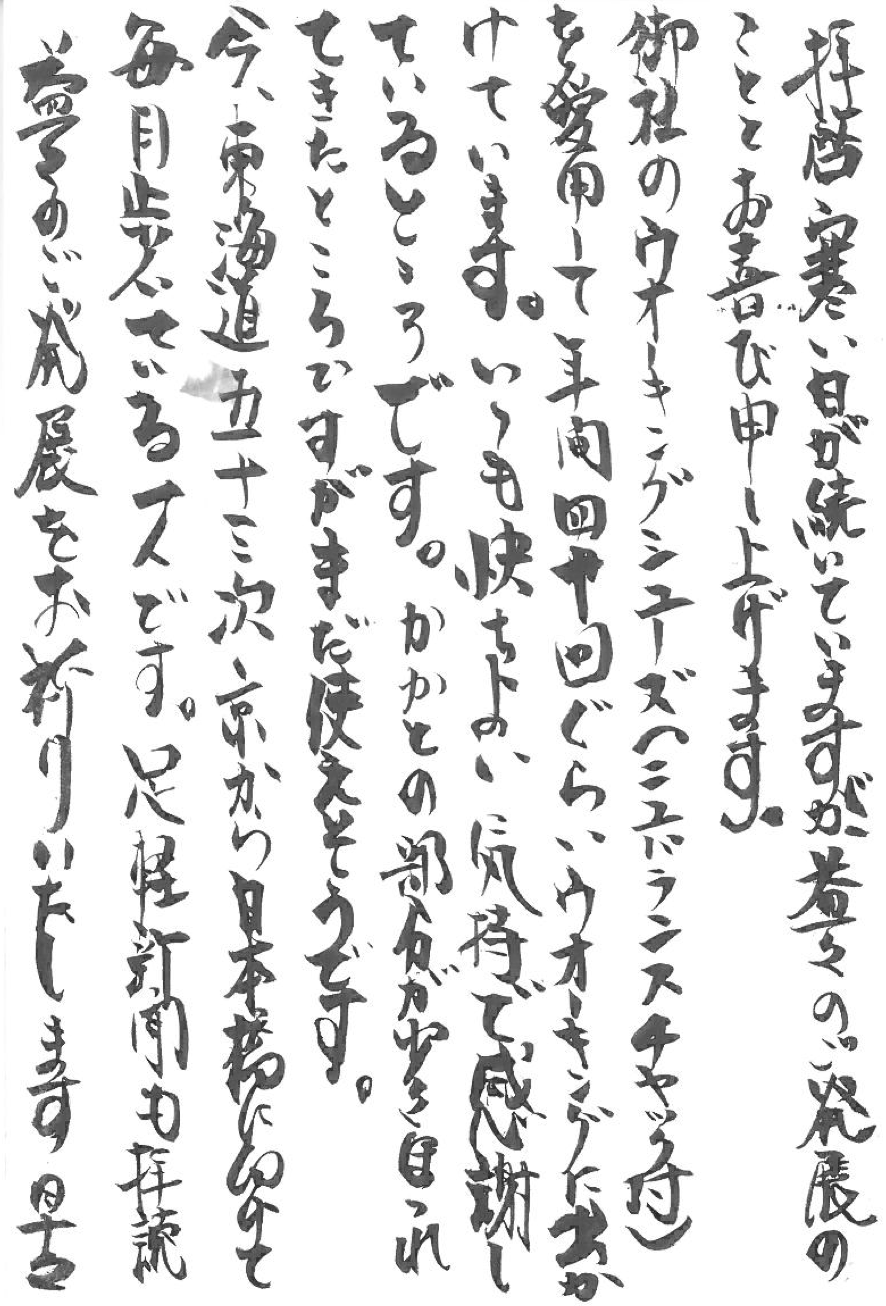 拝啓 寒い日が続いていますが、益々のご発展の
こととお喜び申し上げます。
御社のウオーキングシューズ(ニューバランスチャック付)
を愛用して年間四十回ぐらいウオーキングに出か
けています。いつも快ちよい気持で感謝し
ているところです。かかとの部分が少さ自つれ
てきたところですがまだ使えそうです。
今、東海道五十三次、京から日本橋に向けて
毎月歩いている者です。足軽新聞も拝読
益々のご発展をお祈りいたします 早々